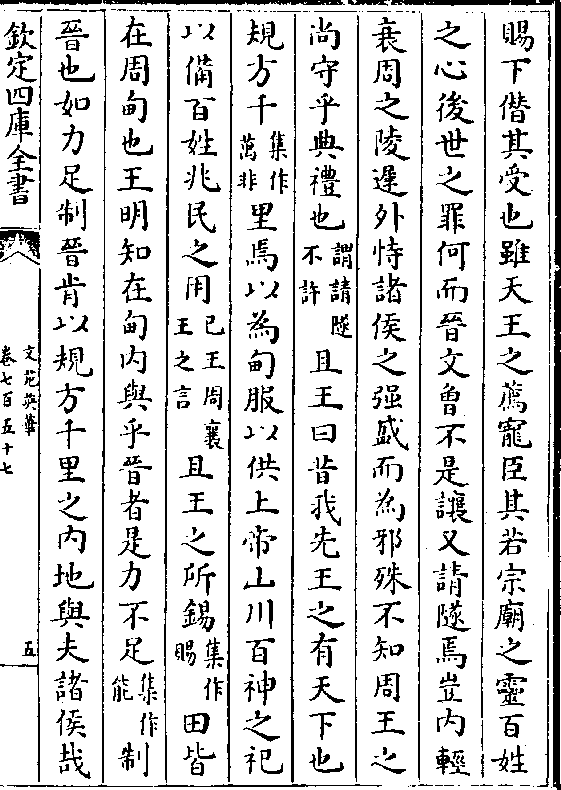 賜下僭其受也雖天王之薦寵臣其若宗廟之靈百姓
之心後世之罪何而晉文曾不是讓又請隧焉豈内輕
衰周之陵遲外恃諸侯之强盛而為邪殊不知周王之
尚守乎典禮也謂請隧不許且王曰昔我先王之有天下也
規方千集作萬非里焉以為甸服以供上帝山川百神之祀
以備百姓兆民之用已王周襄王之言且王之所錫集作賜田皆
在周甸也王明知在甸内與乎晉者是力不足集作能制
晉也如力足制晉肯以規方千里之内地與夫諸侯哉
欽定四庫全書
文苑英華
卷七百五十七
五